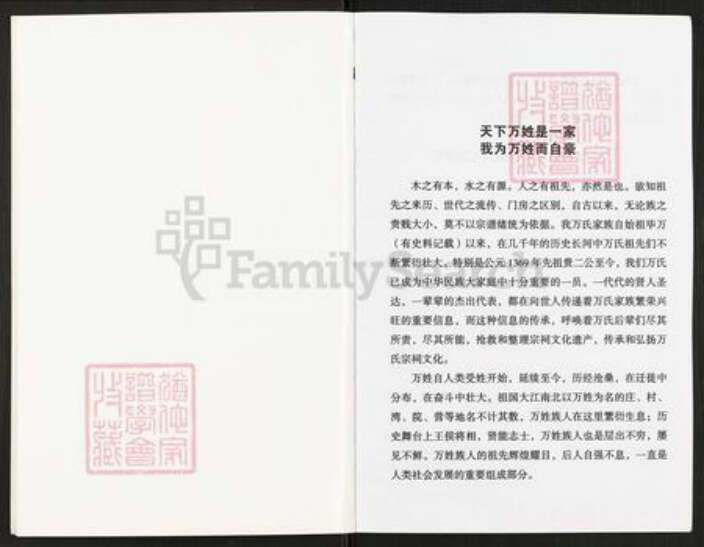 天下万姓是一家
我为万姓而自豪
木之有本，水之有源。人之有祖先，亦然是也。欲知祖
先之来历、世代之流传、门房之区别，自古以来，无论族之
贵贱大小，莫不以宗谱绪统为依据。我万氏家族自始祖毕万
（有史料记载）以来，在几千年的历史长河中万氏祖先们不
断繁衍壮大。特别是公元1369年先祖贵二公至今，我们万氏
已成为中华民族大家庭中十分重要的一员。一代代的贤人圣
达，一辈辈的杰出代表，都在向世人传递着万氏家族繁荣兴
旺的重要信息，而这种信息的传承，呼唤着万氏后辈们尽其
所责，尽其所能，抢救和整理宗祠文化遗产，传承和弘扬万
氏宗祠文化。
万姓自人类受姓开始，延续至今，历经沧桑，在迁徙中
分布，在奋斗中壮大。祖国大江南北以万姓为名的庄、村、
湾、院、营等地名不计其数，万姓族人在这里繁衍生息；历
史舞台上王侯将相，贤能志士，万姓族人也是层出不穷，屡
见不鲜。万姓族人的祖先辉煌耀目，后人自强不息，一直是
人类社会发展的重要组成部分。
FamilySearch